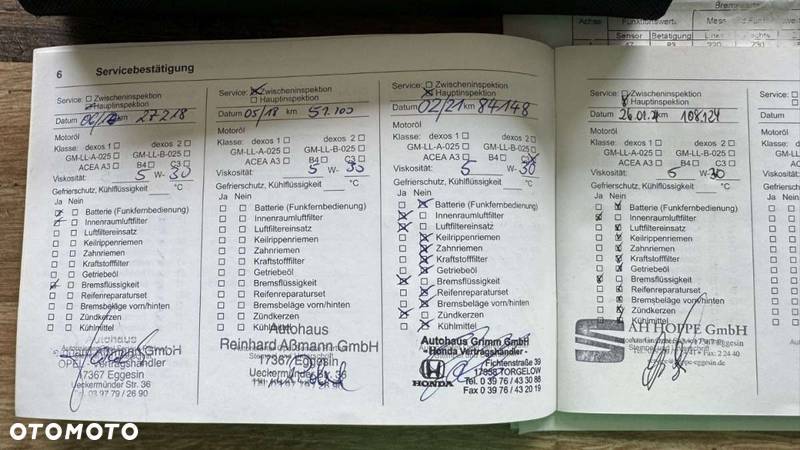 6 Servicebestätigung
Bremswerte
Achse Funktionswerte
Sensor Betätigung
Service: Zwischeninspektion
Hauptinspektion
Datum 06/ km 27218
Motoröl
Klasse: dexos 1 dexos 2
GM-LL-A-025 GM-LL-B-025
ACEA A3 B4 C3
Viskosität: 5 W- 30
Gefrierschutz, Kühlflüssigkeit °C
Ja Nein
Batterie (Funkfernbedienung)
Innenraumluftfilter
Luftfiltereinsatz
Keilrippenriemen
Zahnriemen
Kraftstofffilter
Getriebeöl
Bremsflüssigkeit
Reifenreparaturset
Bremsbeläge vorn/hinten
Zündkerzen
Kühlmittel
GmbH
OPEL Vertragshändler
17367 Eggesin
Ueckermünder Str. 36
Tel. 03 97 79 / 26 90
Service: Zwischeninspektion
Hauptinspektion
Datum 05/18 km 51.100
Motoröl
Klasse: dexos 1 dexos 2
GM-LL-A-025 GM-LL-B-025
ACEA A3 B4 C3
Viskosität: 5 W- 30
Gefrierschutz, Kühlflüssigkeit °C
Ja Nein
Batterie (Funkfernbedienung)
Innenraumluftfilter
Luftfiltereinsatz
Keilrippenriemen
Zahnriemen
Kraftstofffilter
Getriebeöl
Bremsflüssigkeit
Reifenreparaturset
Bremsbeläge vorn/hinten
Zündkerzen
Kühlmittel
Autohaus
Reinhard Aßmann GmbH
17367 Eggesin
Ueckermünder Str. 36
Service: Zwischeninspektion
Hauptinspektion
Datum 02/21 km 84148
Motoröl
Klasse: dexos 1 dexos 2
GM-LL-A-025 GM-LL-B-025
ACEA A3 B4 C3
Viskosität: 5 W- 30
Gefrierschutz, Kühlflüssigkeit °C
Ja Nein
Batterie (Funkfernbedienung)
Innenraumluftfilter
Luftfiltereinsatz
Keilrippenriemen
Zahnriemen
Kraftstofffilter
Getriebeöl
Bremsflüssigkeit
Reifenreparaturset
Bremsbeläge vorn/hinten
Zündkerzen
Kühlmittel
Autohaus Grimm GmbH
- Honda Vertragshändler -
Fichtenstraße 39
17358 TORGELOW
HONDA
Tel. 0 39 76 / 43 30 88
Fax 0 39 76 / 43 20 19
Service: Zwischeninspektion
Hauptinspektion
Datum 26.01. km 108124
Motoröl
Klasse: dexos 1 dexos 2
GM-LL-A-025 GM-LL-B-025
ACEA A3 B4 C3
Viskosität: 5 W- 30
Gefrierschutz, Kühlflüssigkeit °C
Ja Nein
Batterie (Funkfernbedienung)
Innenraumluftfilter
Luftfiltereinsatz
Keilrippenriemen
Zahnriemen
Kraftstofffilter
Getriebeöl
Bremsflüssigkeit
Reifenreparaturset
Bremsbeläge vorn/hinten
Zündkerzen
Kühlmittel
AH HOPPE GmbH
Eggesin
Fax: 2 24 40
Service:
Datum
Motoröl
Klasse:
Viskosität:
Gefrierschutz
Ja Nein
OTOMOTO